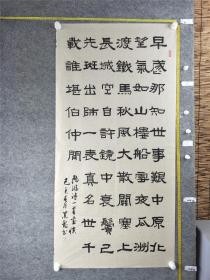 早歲那知世事艱中原北
望氣如山樓船雪夜瓜洲
渡鐵馬秋風大散關塞上
長城空自許鏡中衰鬢已
先斑出師一表真名世千
載誰堪伯仲間
陸游詩一首書憤